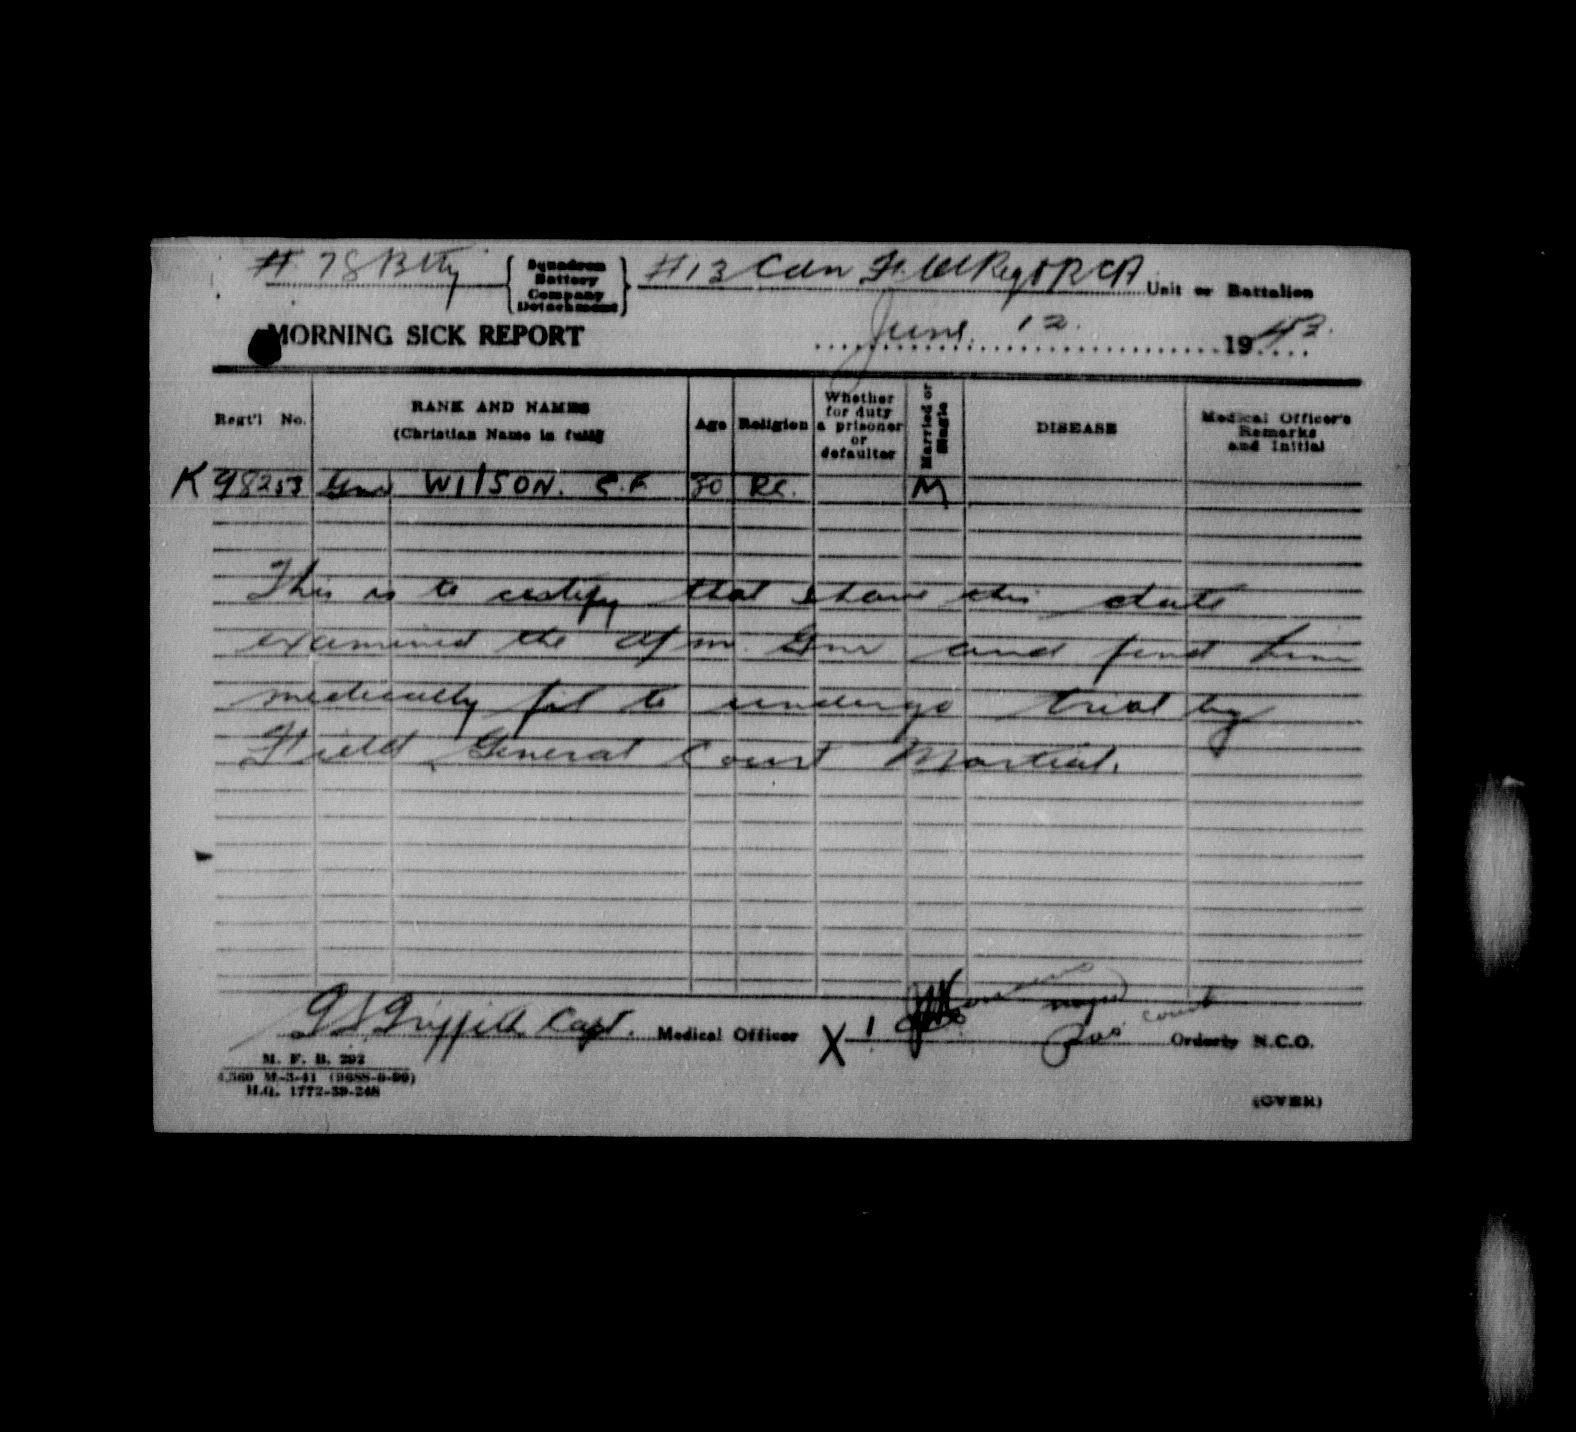 # 78 Btty { Squadron Battery Company Detachment } # 13 Cdn Fd Regt RCA Unit or Battalion
MORNING SICK REPORT June 12. 1943.
Regt'l No. RANK AND NAMES (Christian Name in full) Age Religion Whether for duty a prisoner or defaulter Married or Single DISEASE Medical Officer's Remarks and Initial
K 98253 Gnr WILSON. C.F. 30 RC. M
This is to certify that I have this date
examined the a/m. Gnr and find him
medically fit to undergo trial by
Field General Court Martial.
Griffith Capt. Medical Officer X 1 major Orderly N.C.O.
M. F. B. 292
M-3-41
H.Q. 1772-39-248
(OVER)